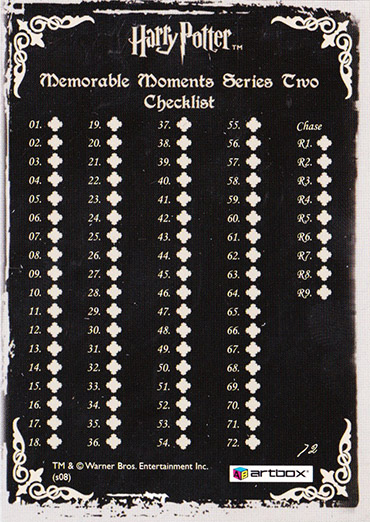 Harry Potter TM
Memorable Moments Series Two
Checklist
01. 19. 37. 55. Chase
02. 20. 38. 56. R1.
03. 21. 39. 57. R2.
04. 22. 40. 58. R3.
05. 23. 41. 59. R4.
06. 24. 42. 60. R5.
07. 25. 43. 61. R6.
08. 26. 44. 62. R7.
09. 27. 45. 63. R8.
10. 28. 46. 64. R9.
11. 29. 47. 65.
12. 30. 48. 66.
13. 31. 49. 67.
14. 32. 50. 68.
15. 33. 51. 69.
16. 34. 52. 70.
17. 35. 53. 71.
18. 36. 54. 72.
72
TM & © Warner Bros. Entertainment Inc.
(s08)
artbox